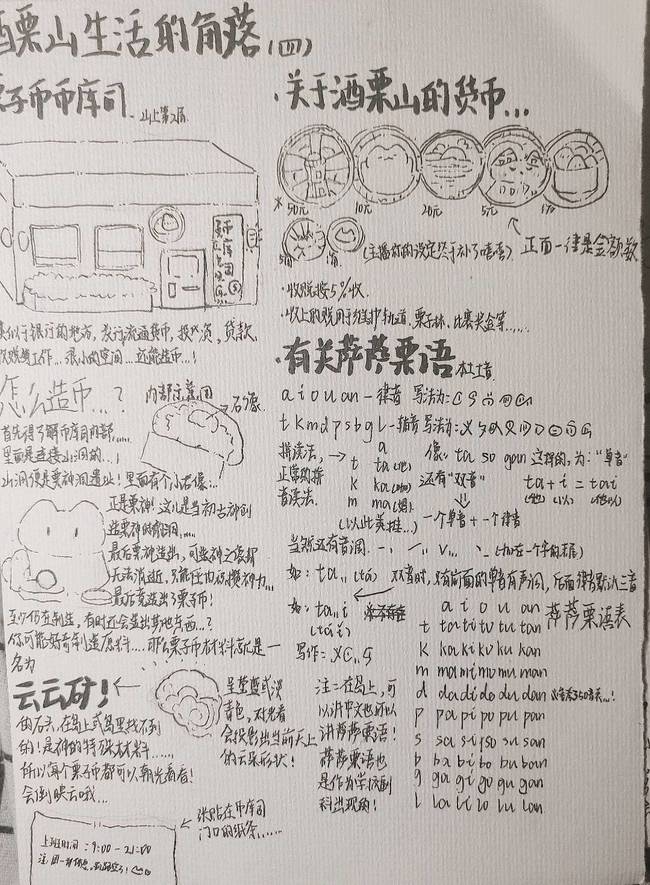 酒栗山生活的角落(四)
栗子币币库司
山上第2届
类似于银行的地方,发行流通货币,投资,贷款,
收税等工作...很小的空间...还能造币...!
怎么造币...?
内部示意图
石像
首先得了解币库司内部,....
里面是连接山洞的...!
山洞便是栗神洞遗址!里面有个小石像...
正是栗神!这儿是当初古神创
造栗神时的
最后栗神造出,可
最后竟造出了栗子币!
至今仍在制造,有时还会造出其他东西...?
你可能好奇制造原料...那么栗子币材料就是一
名为
云云矿!
的石头,在岛上或岛里找不到
的!是神的特殊材料......
所以每个栗子币都可以朝光看看!
会倒映云哦...
呈莹蓝或淡
青色,对光看
会投影出当前天上
的云朵形状!
上班时间:9:00-21:00
张贴在币库司
门口的纸条......
·关于酒栗山的货币...
50元 10元 20元 5元 1元
正面一律是金额数
(主播你的设定终于补了嘻嘻)
·收税按5%收.
·收上的税用于维护轨道、栗子林、比赛奖金等......
·有关萨萨栗语
a i o u an - 律音 写法为:
t k m d p s b g l - 辅音 写法为:
拼读法,→ a
正常的拼
音读法.
t ta(他)
k ka(咖)
m ma(妈)
(以此类推...)
像: ta so gan 这样的,为:"单音"
还有"双音"
ta+i=tai
一个单音+一个律音
当然还有音调. 一、 ˊˊ、 V...、 ˋ (加在一个字的末尾)
如: ta,, (tá) 双音时,只有前面的单音有声调,后面得者默认三音
如: ta,,i
(tá ǐ)
写作:
注:在岛上,可
以讲中文也可以
讲萨萨栗语!
萨萨栗语也
是作为学校副
科出现的!
萨萨栗语表
a i o u an
t ta ti to tu tan
k ka ki ko ku kan
m ma mi mo mu man
d da di do du dan
p pa pi po pu pan
s sa si so su san
b ba bi bo bu ban
g ga gi go gu gan
l la li lo lu lan